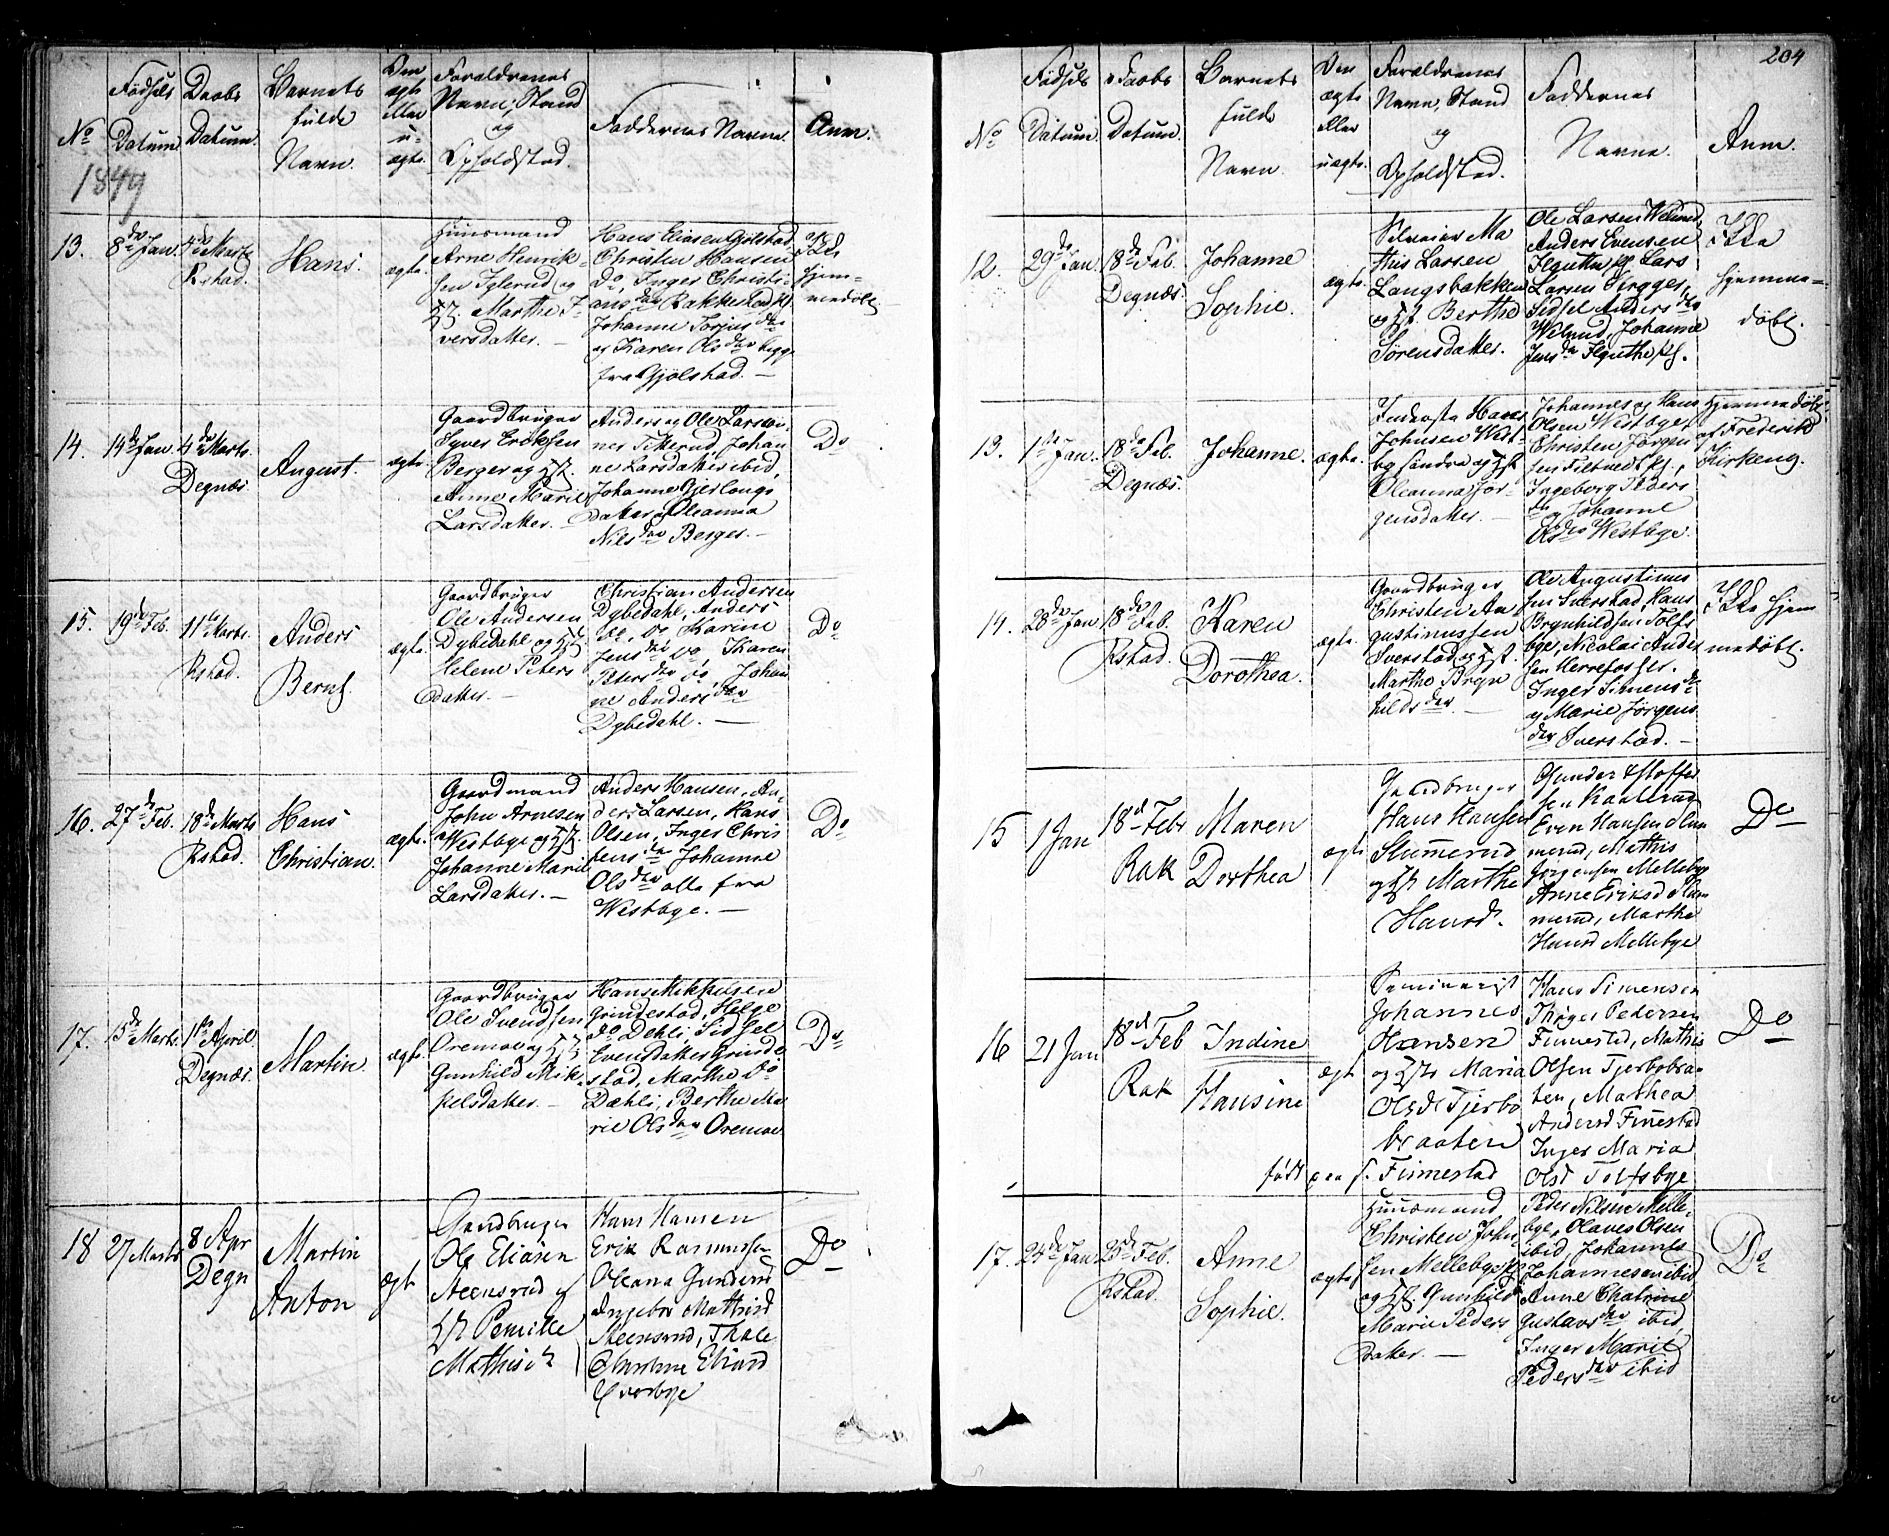 No
Fødsels
Datum
Daabs
Datum.
Barnets
fulde
Navn.
Om
ægte
eller
u-
ægte.
Forældrenes
Navn, Stand
og
Opholdsted.
Faddernes Navne.
Anm.
1849
13.
8de Jan.
4de Marts
Rkstad.
Hans.
ægte.
Huusmand
Arne Henrik-
sen Iglerud og
Hst. Marthe I-
versdatter. —
Hans Eliasen Gjølstad,
Christen Hansen
do, Inger Christi-
ansdtr Rakkestad,
Johanne Torjusdtr
og Karen Olsdtr begge
fra Gjølstad. —
Ikke
hjem-
medøbt.
14.
14de Jan.
4de Marts.
Degnæs.
August.
ægte.
Gaardbruger
Syver Eriksen
Berger og Hst.
Anne Marie
Larsdatter. —
Anders og Ole Larsøn-
ner Titterud, Johan
ne Larsdatter ibid,
Johanne Gjerlougs
datter og Oleanna
Nilsdtr Berger. —
Do
15.
19de Feb.
11te Marts.
Rkstad.
Anders
Bernt.
ægte.
Gaardbruger
Ole Andersen
Dybedahl og Hst
Helene Peters
datter. —
Christian Andersen
Dybedahl, Anders
do, do Karine
Jensdtr do, Karen
Petersdtr do, Johan
ne Andersdtr
Dybedahl. —
Do
16.
27de Feb.
18de Marts
Rkstad.
Hans
Christian.
ægte.
Gaardmand
John Arnesen
Westbye og Hst.
Johanne Marie
Larsdatter. —
Anders Hansen, An-
ders Larsen, Hans
Olsen, Inger Chris
tensdtr Johanne
Olsdtr alle fra
Westbye. —
Do
17.
15de Marts.
1ste April.
Degnæs.
Martin.
ægte.
Gaardbruger
Ole Svendsen
Oremoe og Hst
Gunhild Mik-
kelsdatter. —
Hans Mikkelsen
Grindestad, Helge
do Dehli, Sidsel
Evensdatter Grinde
stad, Marthe do
Dæhli, Berthe Ma
rie Olsdtr Oremoe
Do
18
27 Marts
8 Apr
Degn
Martin
Anton
ægt.
Gaardbruger
Ole Eliasen
Steensrud og
Hst Pernille
Mathisd
Hans Hansen
Erik Rasmussen
Oleana Gundersd
Ingebor Mathisd
Steensrud, Thale
Christine Eliasd
Do
204
No
Fødsels
Datum
Daabs
Datum.
Barnets
fulde
Navn.
Om
ægte
eller
uægte.
Forældrenes
Navn, Stand
og
Opholdsted.
Faddernes
Navne.
Anm.
12.
29de Jan.
18de Feb.
Degnæs.
Johanne
Sophie.
ægte.
Ma
this Larsen
Langsbakken
og Hst. Berthe
Sørensdatter.
Ole Larsen Welund,
Anders Evensen
Lars
Larsen
Sidsel Andersdtr
Welund, Johanne
Ikke
hjemme-
døbt.
13.
1ste Jan.
18de Feb.
Degnæs.
Johanne.
ægte.
Inderste Hans
Johnsen West-
by søndre og Hst
Oleanna Jør-
gensdatter. —
Johannes og Hans
Olsen Westbye,
Christen Jørgen
Ingeborg Peders
dtr og Johanne
Olsdtr Westbye.
Hjemmedøbt
af Frederik
Kirkeng.
14.
28de Jan
18de Feb.
Rkstad.
Karen
Dorothea.
ægte.
Gaardbruger
Christen Au
gustinussen
Sverstad og Hst.
Marthe Bryn
hildsdtr. —
Ole Augustinus
sen Sverstad, Hans
Brynhildsen Tolfs
bye, Nicolai Anders
sen Herrefosser.
Inger Simensdtr
og Marie Jørgens
dtr Sverstad. —
Ikke hjem
medøbt.
15
1 Jan
18d Febr
Rak
Maren
Dorthea
ægte
Gaardbruger
Hans Hansen
Slummerud
og Hst Marthe
Hansd.
Gunder Stoffer
sen Kaallerud
Even Hansen Slum
merud, Mathis
Jørgensen Mellebye
Anne Eriksd Slum
merud, Marthe
Hansd Mellebye
Do
16
21 Jan
18d Feb
Rak
Indine
Hansine
ægt.
Seminarist
Johannes
Hansen
og Hst Maria
Olsd Tjerbo
braaten
født paa f. Finnestad
Hans Simensen
Thøger Pedersen
Finnestad, Mathis
Olsen Tjerbobra-
ten, Mathea
Andersd Finnestad
Inger Maria
Olsd Tolfsbye
Do
17.
24de Jan
25de Feb.
Rkstad.
Anne
Sophie.
ægte
Huusmand
Christen Johan-
sen Mellebye
og Hst. Gunhild
Marie Peders
datter. —
Peder Nilsen Melle-
bye, Olaves Olsen
ibid, Johannes
Johannesen ibid
Anne Chatrine
Gustavsdtr ibid,
Inger Marie
Pedersdtr ibid
Do